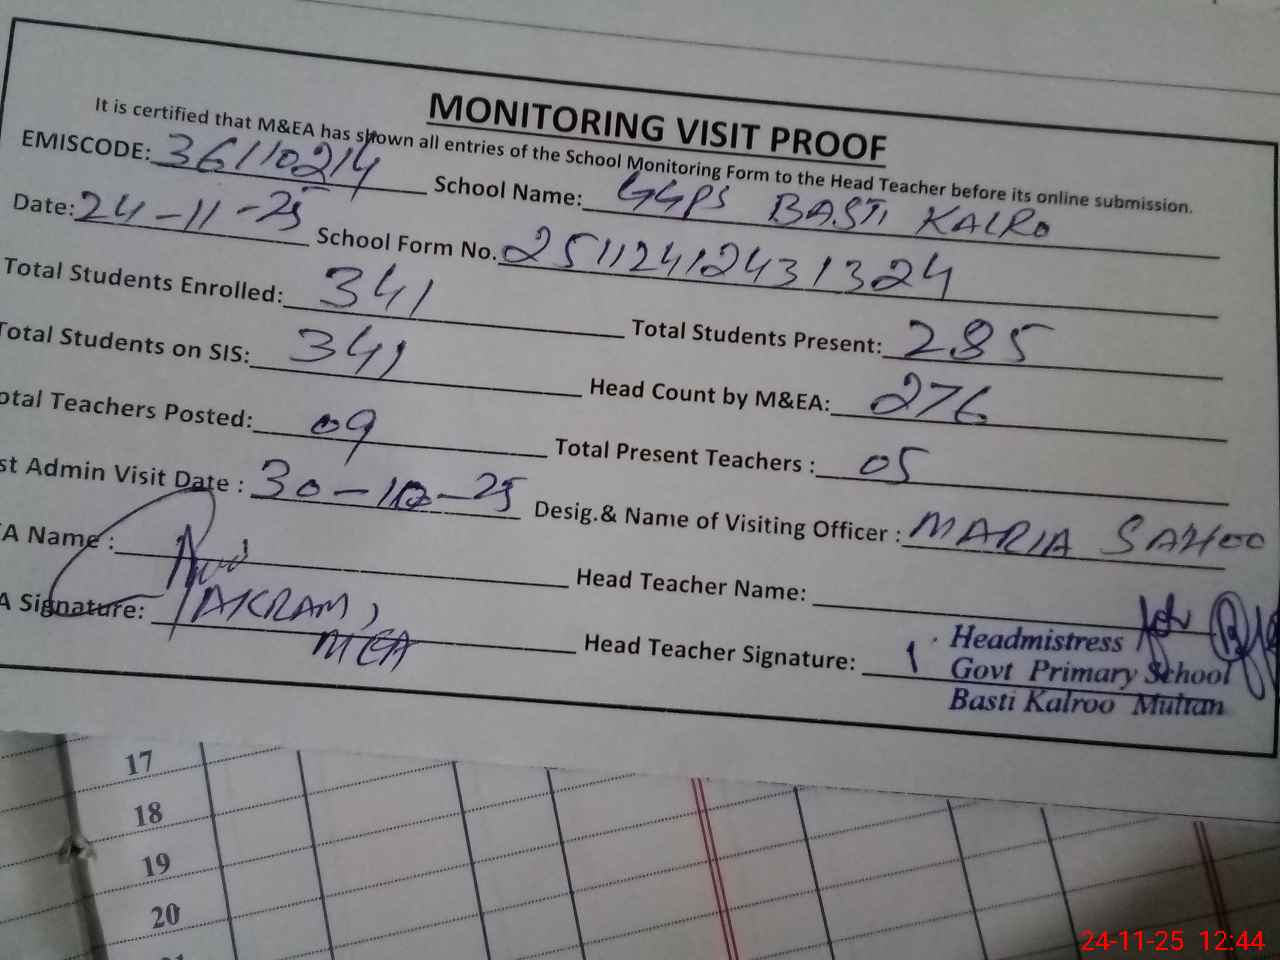 MONITORING VISIT PROOF
It is certified that M&EA has shown all entries of the School Monitoring Form to the Head Teacher before its online submission.
EMISCODE: 36110214 School Name: GGPS BASTI KALRO
Date: 24-11-25 School Form No. 25112412431324
Total Students Enrolled: 341 Total Students Present: 285
Total Students on SIS: 341 Head Count by M&EA: 276
otal Teachers Posted: 09 Total Present Teachers : 05
st Admin Visit Date : 30-10-25 Desig.& Name of Visiting Officer : MARIA SAHOO
A Name : Head Teacher Name:
A Signature: AKRAM, Head Teacher Signature:
MEA
Headmistress
Govt Primary School
Basti Kalroo Multan
17
18
19
20
24-11-25 12:44